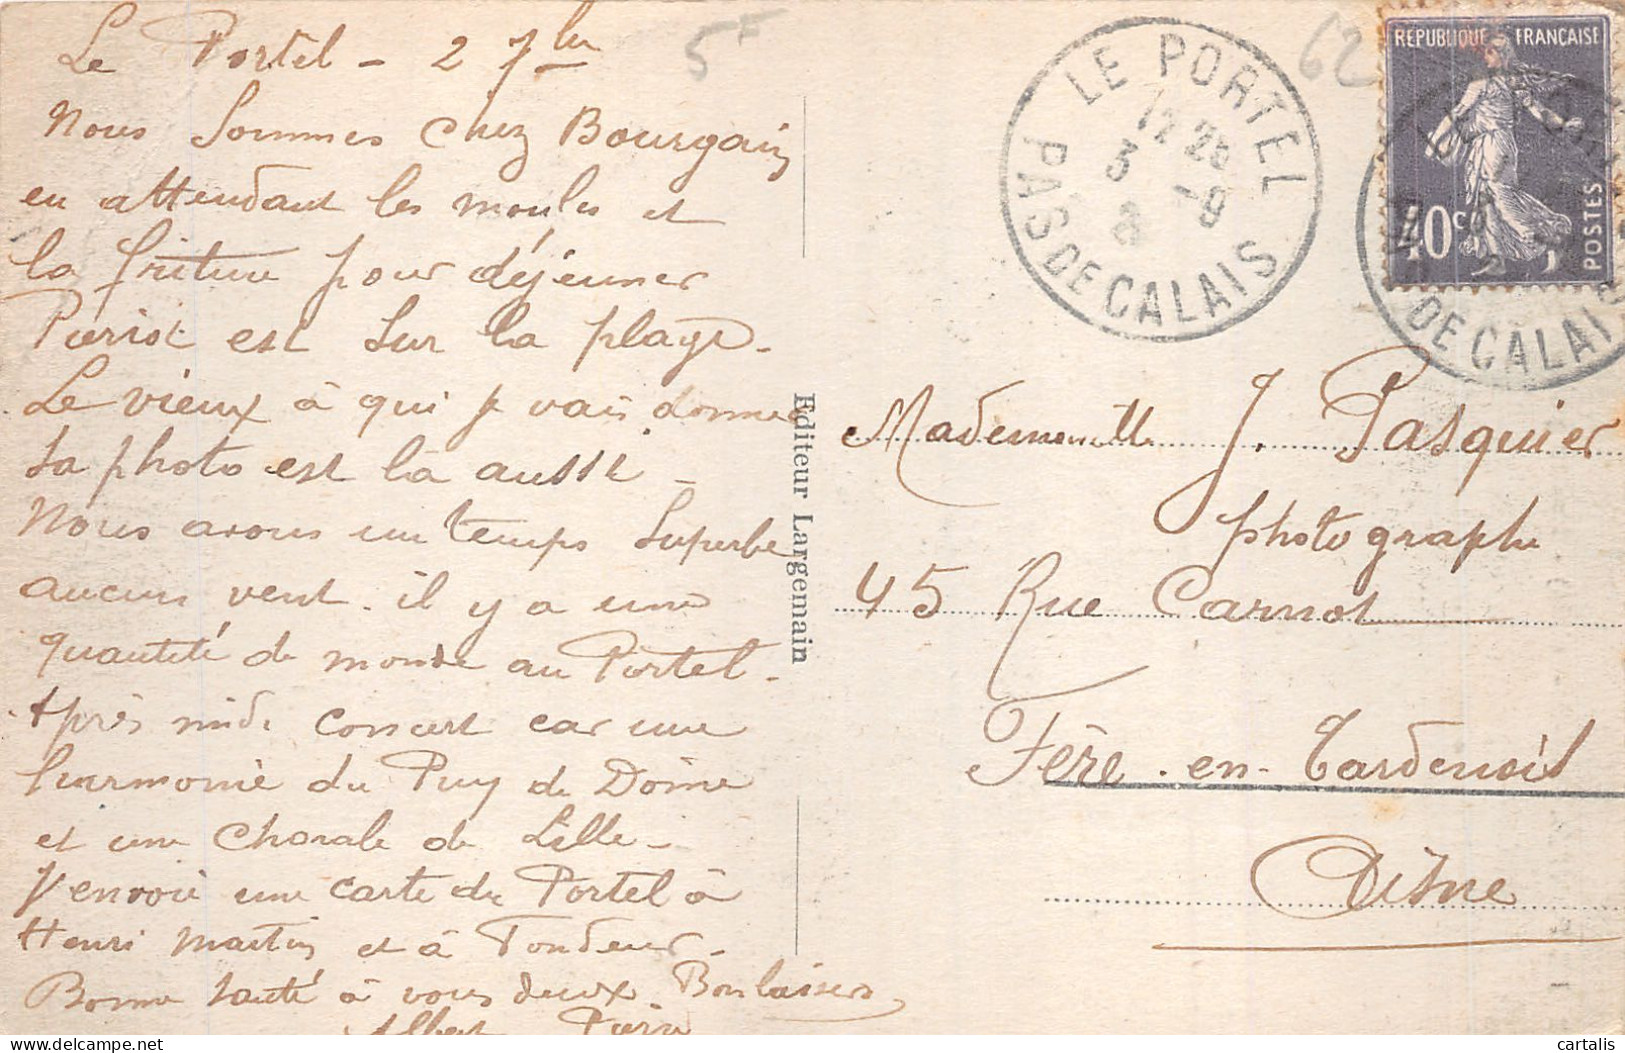 Le Portel - 2 7bre
Nous sommes chez Bourgain
en attendant les moules et
la friture pour déjeuner
est sur la plage -
Le vieux à qui je vais donner
sa photo est là aussi -
Nous avons un temps superbe
aucun vent - il y a une
quantité de monde au Portel -
Après midi concert car une
harmonie du Puy de Dôme
et une chorale de Lille -
J'envoie une carte du Portel à
Henri Martin et à Tondeur -
Bonne santé à vous deux. Bons baisers
Albert
5F
62
LE PORTEL
12 25
3 -9
PAS DE CALAIS
REPUBLIQUE FRANÇAISE
40c
POSTES
DE CALAIS
Editeur Largemain
Mademoiselle J. Pasquier
photographe
45 Rue Carnot
Fère-en-Tardenois
Aisne
cartalis